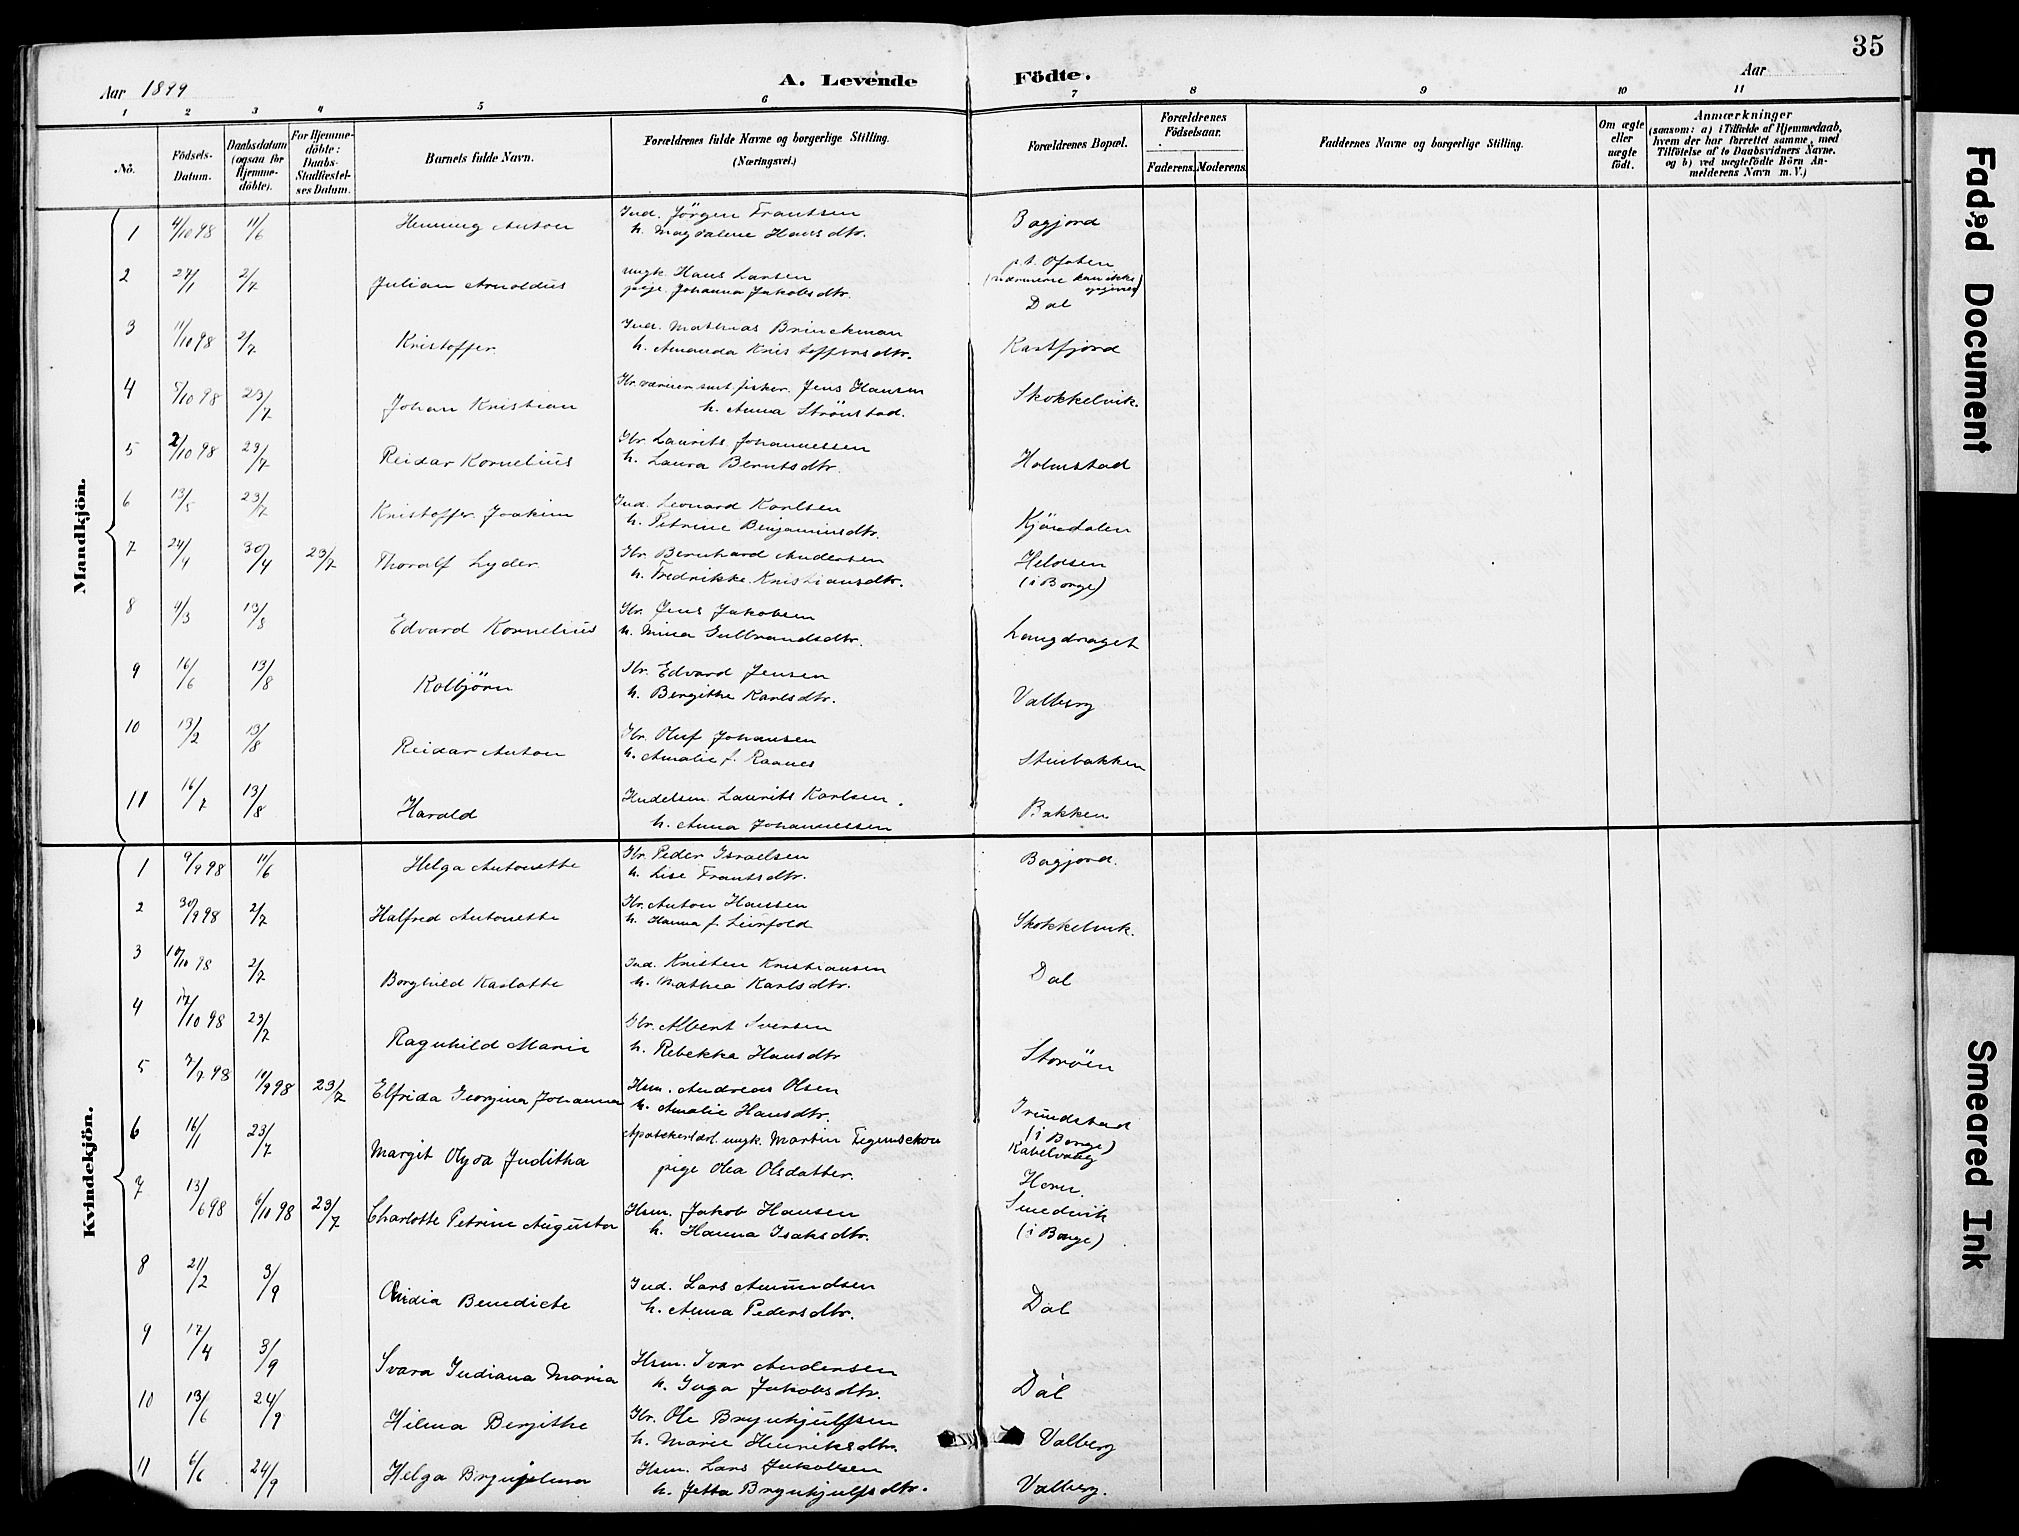 35
Aar 1899 A. Levende Födte. Aar
1 2 3 4 5 6 7 8 9 10 11
No.
Födsels-Datum.
Daabsdatum (ogsaa for Hjemme-döbte).
For Hjemme-döbte: Daabs-Stadfæstel-ses Datum.
Barnets fulde Navn.
Forældrenes fulde Navne og borgerlige Stilling. (Næringsvei.)
Forældrenes Bopæl.
Forældrenes Födselsaar.
Faderens. Moderens.
Faddernes Navne og borgerlige Stilling.
Om ægte eller uægte født.
Anmærkninger
(saasom: a) i Tilfælde af Hjemmedaab,
hvem der har forrettet samme, med
Tilföielse af to Daabsvidners Navne.
og b) ved uægtefödte Börn An-
melderens Navn m. V.)
Mandkjön.
1 4/10 98 11/6 Henning Anton Ind. Jörgen Frantsen Bagjord
h. Magdalene Hansdtr.
2 24/1 2/7 Julian Arnoldus ungk. Hans Larsen p.t. Ofoten
pige Johanna Jakobsdtr. (nærmere kan ikke opgives)
Dal
3 11/10 98 2/7 Kristoffer Ind. Mathias Brinckman
h. Amanda Kristoffersdtr. Kartfjord
4 5/10 98 23/7 Johan Kristian fisker. Jens Hansen Skokkelvik.
h. Anna Strönstad.
5 2/10 98 23/7 Reidar Kornelius Gbr. Laurits Johannessen
h. Laura Berntsdtr. Holmstad
6 13/5 23/7 Kristoffer Joakim Ind. Leonard Karlsen
h. Petrine Benjaminsdtr. Kjöndalen
7 24/4 30/4 23/7 Thoralf Lyder Gbr. Bernhard Andersen Helosen
h. Fredrikke Kristiansdtr. (i Borge)
8 4/3 13/8 Edvard Kornelius Gbr. Jens Jakobsen
h. Mina Gulbrandsdtr. Langdraget
9 16/6 13/8 Kolbjörn Gbr. Edvard Jensen
h. Bergithe Karlsdtr. Valberg
10 13/2 13/8 Reidar Anton Gbr. Oluf Johansen
h. Amalie f. Raanes Stenbakken
11 16/7 13/8 Harald Handelsm. Laurits Karlsen. Bakken
h. Anna Johannessen
Kvindekjön.
1 9/9 98 11/6 Helga Antonette Gbr. Peder Israelsen Bagjord.
h. Lise Frantsdtr.
2 30/9 98 2/7 Halfred Antonette Gbr. Anton Hansen
h. Hanna f. Leirfold Skokkelvik.
3 10/10 98 2/7 Borghild Karlotte Ind. Kristen Kristiansen Dal
h. Mathea Karlsdtr.
4 17/10 98 23/7 Ragnhild Marie Gbr. Albert Iversen
h. Rebekka Hansdtr Storöen
5 7/7 98 11/9 98 23/7 Elfrida Georgina Johanna Hsm. Andreas Olsen
h. Amalie Hansdtr. Trundstad
(i Borge)
6 16/1 23/7 Margit Olyda Juditha ungk. Martin Tegenschou Kabelvaag
pige Olea Olsdatter. Horn.
7 13/6 98 6/11 98 23/7 Charlotte Petrine Augusta Hsm. Jakob Hansen Smedvik
h. Hanna Isaksdtr. (i Borge).
8 21/2 3/9 Ovidia Benedicte Ind. Lars Amundsen
h. Anna Pedersdtr. Dal
9 17/4 3/9 Svara Indiana Maria Hsm. Ivar Andersen
h. Inga Jakobsdtr. Dal
10 13/6 24/9 Hilma Bergithe Gbr. Ole Brynhjulfsen
h. Marie Henriksdtr. Valberg
11 6/6 24/9 Helga Brynjelma Hsm. Lars Jakobsen
h. Jetta Brynhjulfsdtr. Valberg.
Faded Document
Smeared Ink